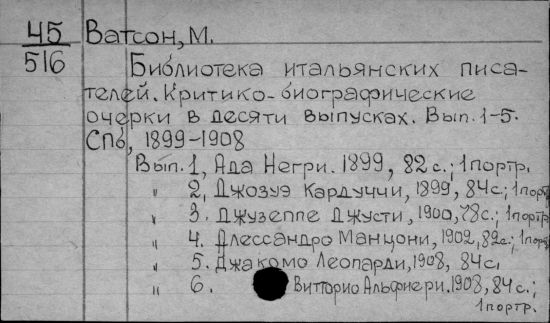 45 Ватсон, М.
516 Библиотека итальянских писа-
телей. Критико-биографические
очерки в десяти выпусках. Вып. 1-5.
СПб, 1899-1908
Вып. 1, Ада Негри. 1899, 82 с.; 1 портр.
" 2, Джозуэ Кардуччи, 1899, 84 с.; 1 портр
" 3. Джузеппе Джусти, 1900, 78 с.; 1 портр
" 4. Алессандро Манцони, 1902, 82 с.; 1 портр
" 5. Джакомо Леопарди, 1908, 84 с.
" 6. Витторио Альфиери. 1908, 84 с.;
1 портр.